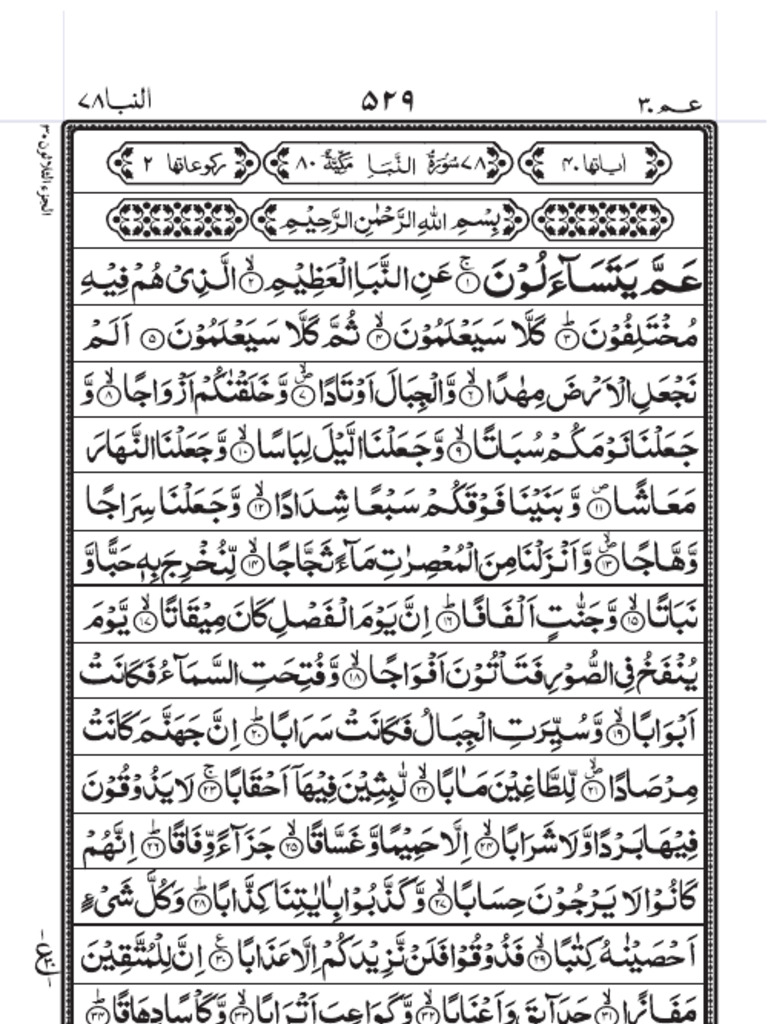 عـم ٣٠ ٥٢٩ النبا ٧٨
الجزء الثلاثون ٣٠
اٰیاتها ٤٠ ٧٨ سُوْرَةُ النَّبَاِ مَكِّيَّةٌ ٨٠ ركوعاتها ٢
بِسْمِ اللّٰهِ الرَّحْمٰنِ الرَّحِيْمِ
عَمَّ يَتَسَآءَلُوْنَ ۚ‏﴿۱﴾ عَنِ النَّبَاِ الْعَظِيْمِ ۙ‏﴿۲﴾ الَّذِىْ هُمْ فِيْهِ
مُخْتَلِفُوْنَ ؕ‏﴿۳﴾ كَلَّا سَيَعْلَمُوْنَ ۙ‏﴿۴﴾ ثُمَّ كَلَّا سَيَعْلَمُوْنَ ‏﴿۵﴾ اَلَمْ
نَجْعَلِ الْاَرْضَ مِهٰدًا ۙ‏﴿۶﴾ وَّالْجِبَالَ اَوْتَادًا ۪ۙ‏﴿۷﴾ وَّخَلَقْنٰكُمْ اَزْوَاجًا ۙ‏﴿۸﴾ وَّ
جَعَلْنَا نَوْمَكُمْ سُبَاتًا ۙ‏﴿۹﴾ وَّجَعَلْنَا الَّيْلَ لِبَاسًا ۙ‏﴿۱۰﴾ وَّجَعَلْنَا النَّهَارَ
مَعَاشًا ۪‏﴿۱۱﴾ وَّبَنَيْنَا فَوْقَكُمْ سَبْعًا شِدَادًا ۙ‏﴿۱۲﴾ وَّجَعَلْنَا سِرَاجًا
وَّهَّاجًا ۪ۙ‏﴿۱۳﴾ وَّاَنْزَلْنَا مِنَ الْمُعْصِرٰتِ مَآءً ثَجَّاجًا ۙ‏﴿۱۴﴾ لِّنُخْرِجَ بِهٖ حَبًّا وَّ
نَبَاتًا ۙ‏﴿۱۵﴾ وَّجَنّٰتٍ اَلْفَافًا ؕ‏﴿۱۶﴾ اِنَّ يَوْمَ الْفَصْلِ كَانَ مِيْقَاتًا ۙ‏﴿۱۷﴾ يَّوْمَ
يُنْفَخُ فِى الصُّوْرِ فَتَاْتُوْنَ اَفْوَاجًا ۙ‏﴿۱۸﴾ وَّفُتِحَتِ السَّمَآءُ فَكَانَتْ
اَبْوَابًا ۙ‏﴿۱۹﴾ وَّسُيِّرَتِ الْجِبَالُ فَكَانَتْ سَرَابًا ؕ‏﴿۲۰﴾ اِنَّ جَهَنَّمَ كَانَتْ
مِرْصَادًا ۪ۙ‏﴿۲۱﴾ لِّلطَّاغِيْنَ مَاٰبًا ۙ‏﴿۲۲﴾ لّٰبِثِيْنَ فِيْهَاۤ اَحْقَابًا ۚ‏﴿۲۳﴾ لَا يَذُوْقُوْنَ
فِيْهَا بَرْدًا وَّلَا شَرَابًا ۙ‏﴿۲۴﴾ اِلَّا حَمِيْمًا وَّغَسَّاقًا ۙ‏﴿۲۵﴾ جَزَآءً وِّفَاقًا ؕ‏﴿۲۶﴾ اِنَّهُمْ
كَانُوْا لَا يَرْجُوْنَ حِسَابًا ۙ‏﴿۲۷﴾ وَّكَذَّبُوْا بِاٰيٰتِنَا كِذَّابًا ؕ‏﴿۲۸﴾ وَكُلَّ شَىْءٍ
اَحْصَيْنٰهُ كِتٰبًا ۙ‏﴿۲۹﴾ فَذُوْقُوْا فَلَنْ نَّزِيْدَكُمْ اِلَّا عَذَابًا ‏﴿۳۰﴾ اِنَّ لِلْمُتَّقِيْنَ
مَفَازًا ۙ‏﴿۳۱﴾ حَدَآئِقَ وَاَعْنَابًا ۙ‏﴿۳۲﴾ وَّكَوَاعِبَ اَتْرَابًا ۙ‏﴿۳۳﴾ وَّكَاْسًا دِهَاقًا ؕ‏﴿۳۴﴾